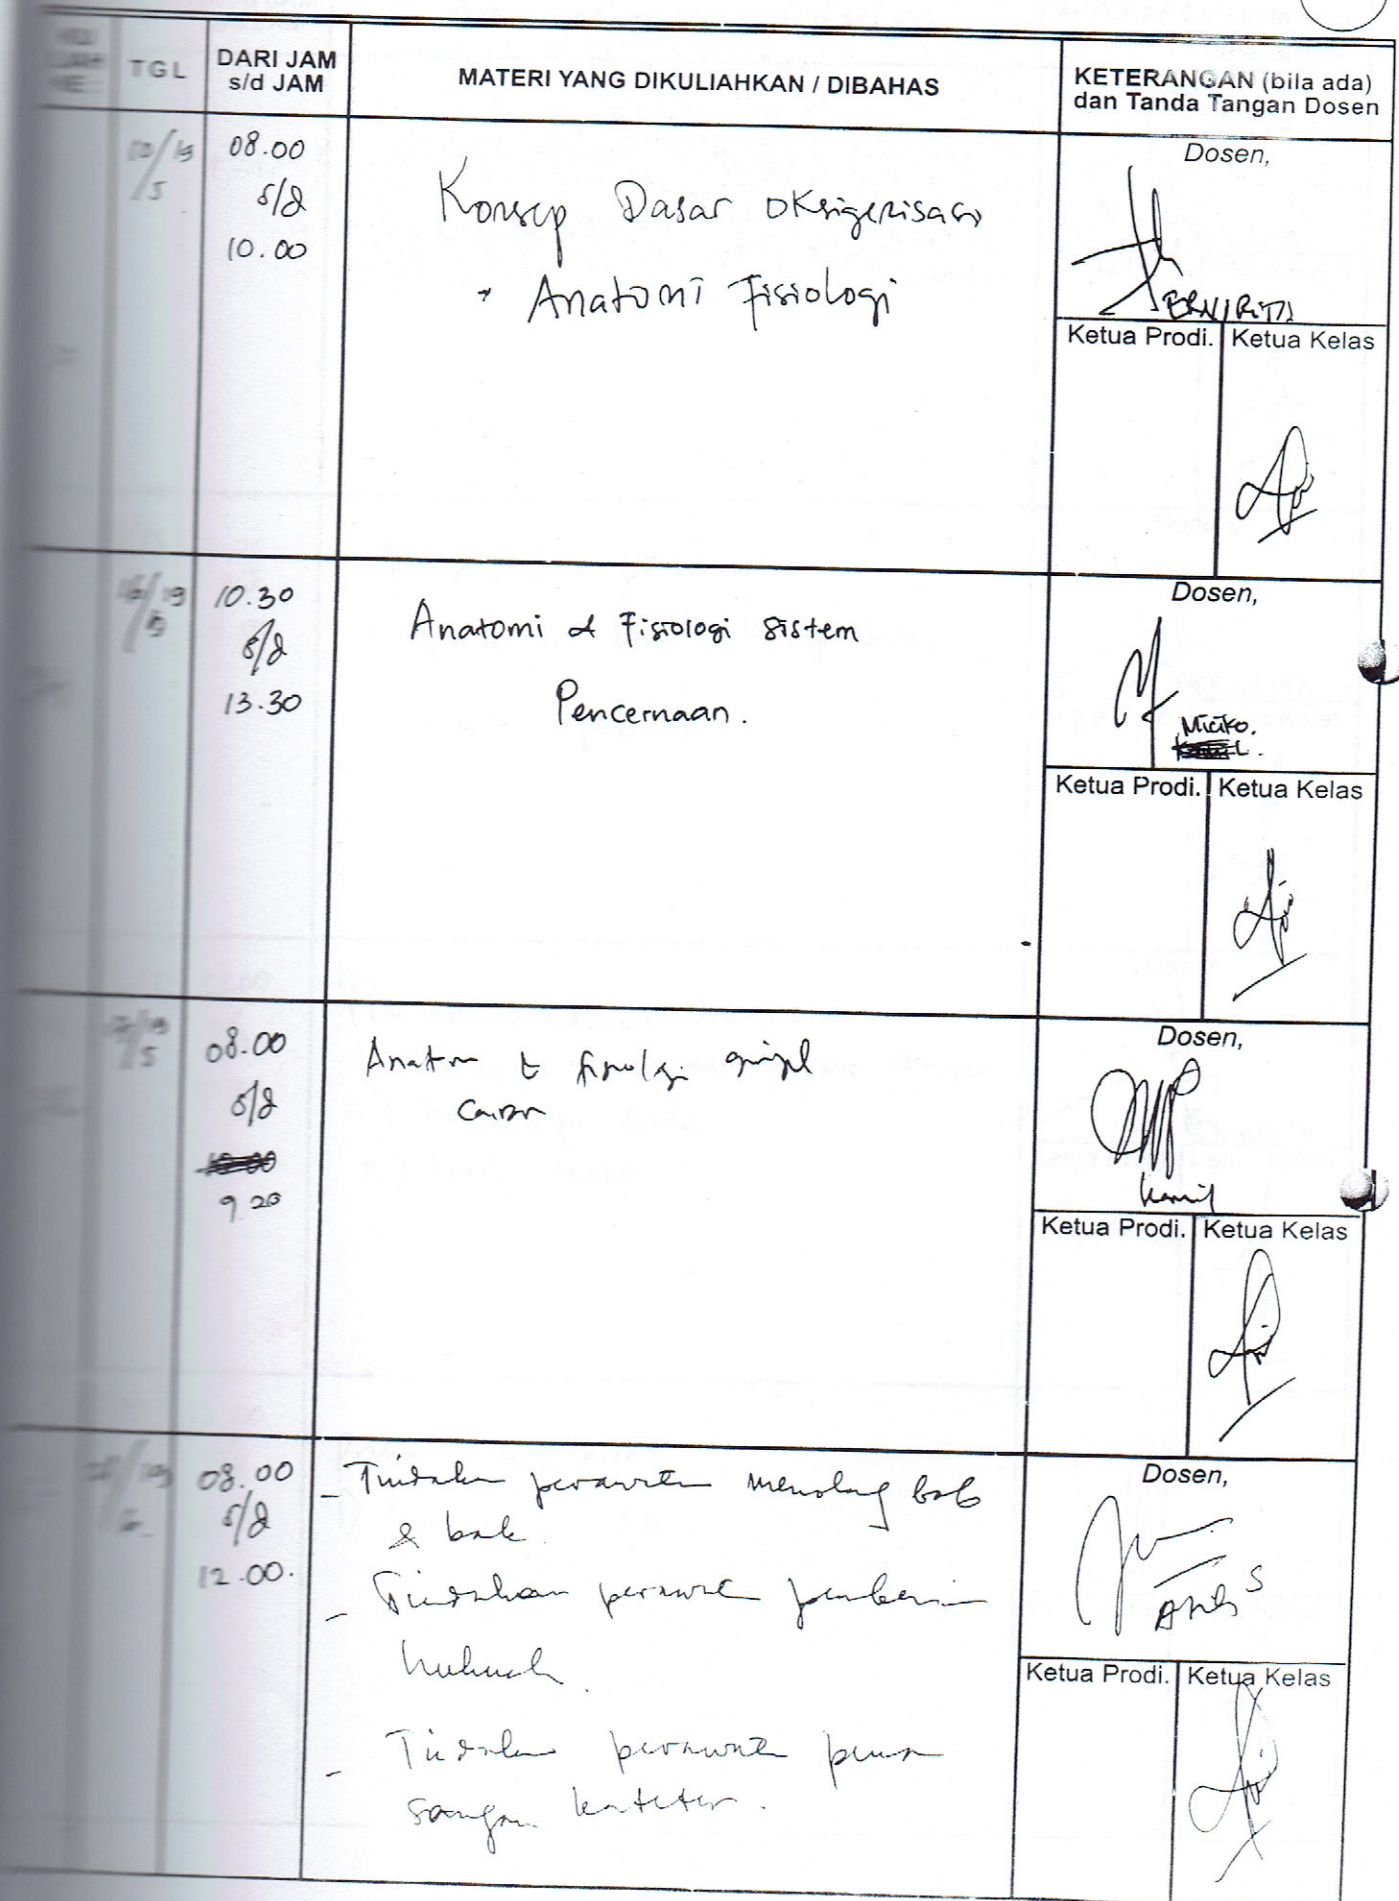 TGL
DARI JAM
s/d JAM
MATERI YANG DIKULIAHKAN / DIBAHAS
KETERANGAN (bila ada)
dan Tanda Tangan Dosen
10/19
5
08.00
s/d
10.00
Konsep Dasar Oksigenisasi
Anatomi Fisiologi
Dosen,
Ketua Prodi.
Ketua Kelas
16/19
5
10.30
s/d
13.30
Anatomi & Fisiologi Sistem
Pencernaan.
Dosen,
Ketua Prodi.
Ketua Kelas
17/19
5
08.00
s/d
10.00
9.20
Dosen,
Kamil
Ketua Prodi.
Ketua Kelas
08.00
s/d
12.00.
- Tindakan perawatan menolong bab
& bak.
- Tindakan perawat pemberian
- Tindakan perawat pema
sangan kateter.
Dosen,
Ketua Prodi.
Ketua Kelas